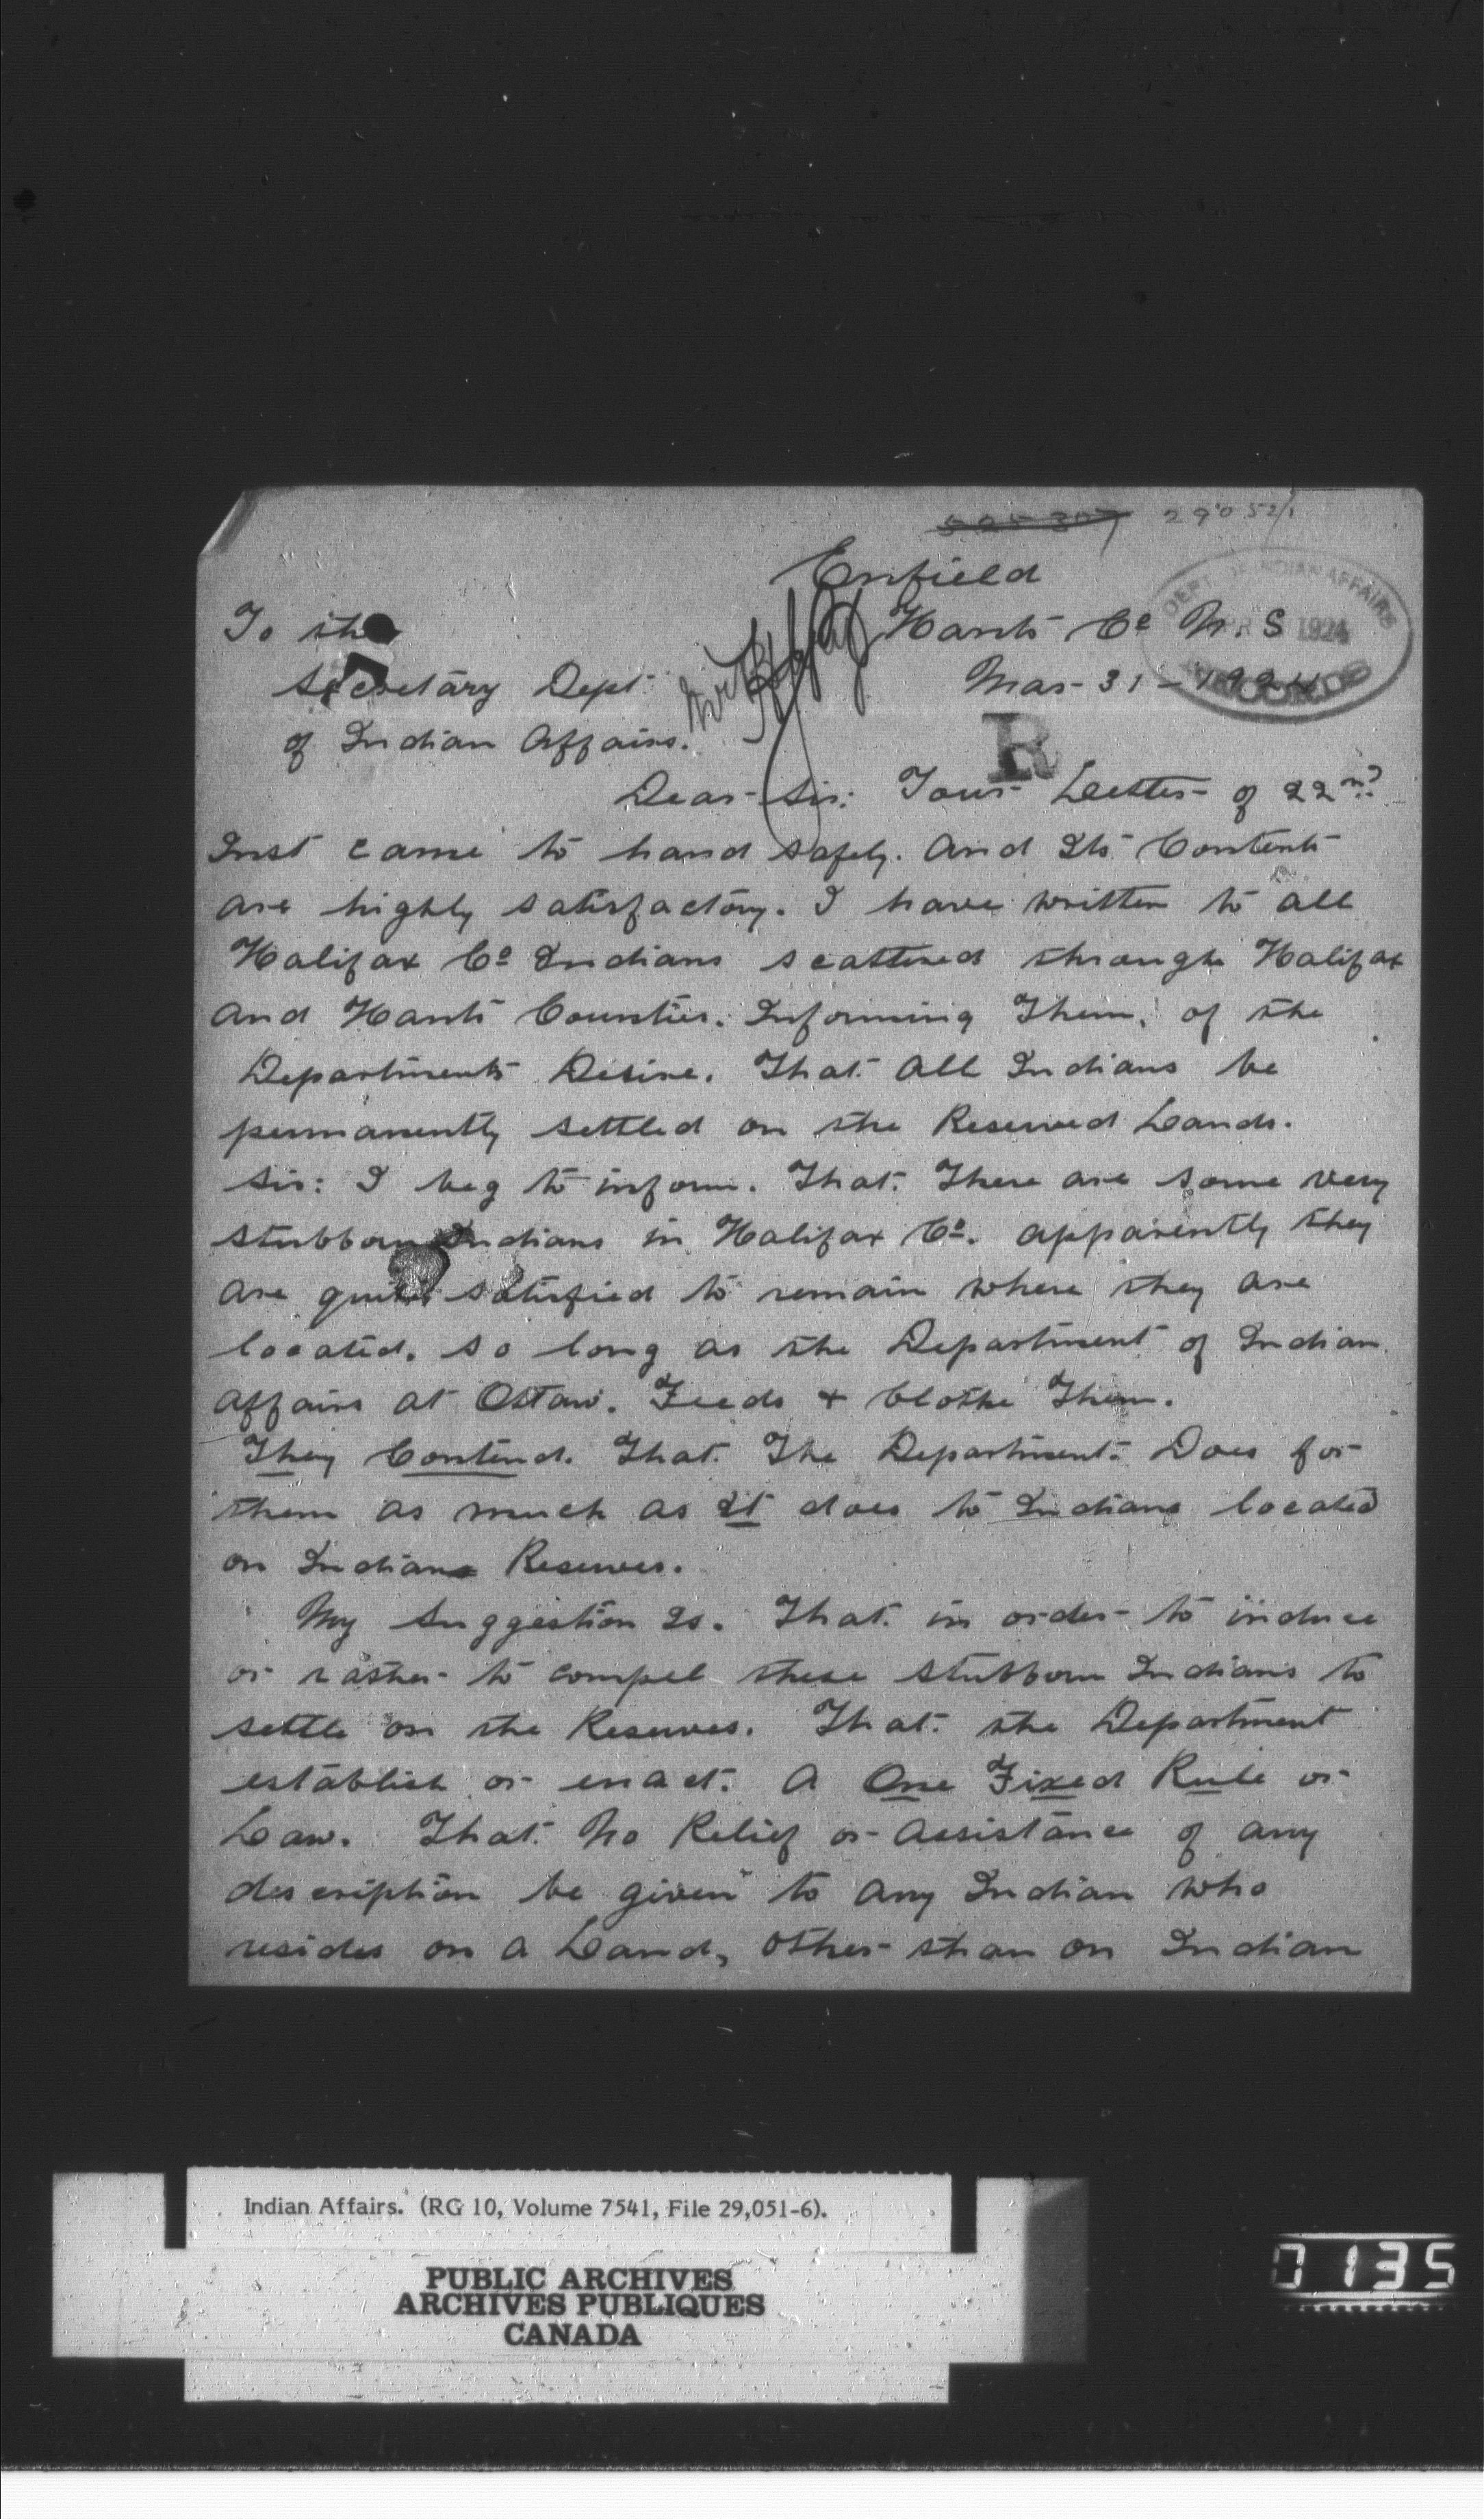 29052/1
Enfield
To the
Hants Co N.S
Secretary Dept
Mar- 31 - 1924
of Indian Affairs.
DEPT OF INDIAN AFFAIRS
1924
RECORDS
R
Dear Sir: Your Letter of 22nd
Inst came to hand safely. And Its Contents
are highly satisfactory. I have written to all
Halifax Co Indians scattered through Halifax
And Hants Counties. Informing Them, of the
Departments Desire. That All Indians be
permanently settled on the Reserved Lands.
Sir: I beg to inform. That. There are some very
stubborn Indians in Halifax Co. apparently they
are quite satisfied to remain where they are
located. so long as the Department of Indian
Affairs at Ottaw. Feeds + Clothe Them.
They Contend. That. The Department Does for
them as much as It does to Indians located
on Indians Reserves.
My Suggestion Is. That. in order to induce
or rather to compel these stubborn Indians to
settle on the Reserves. That. the Department
establish or enact. A One Fixed Rule or
Law. That. No Relief or Assistance of any
description be given to Any Indian who
resides on A Land, other than on Indian
Indian Affairs. (RG 10, Volume 7541, File 29,051-6).
PUBLIC ARCHIVES
ARCHIVES PUBLIQUES
CANADA
0135